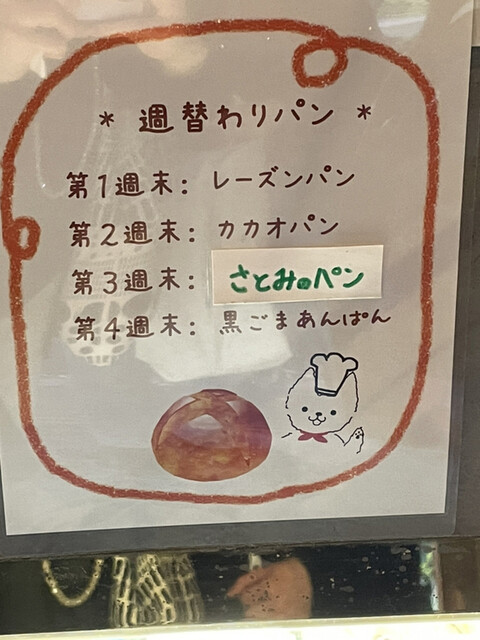 * 週替わりパン *
第1週末: レーズンパン
第2週末: カカオパン
第3週末: さとみのパン
第4週末: 黒ごまあんぱん